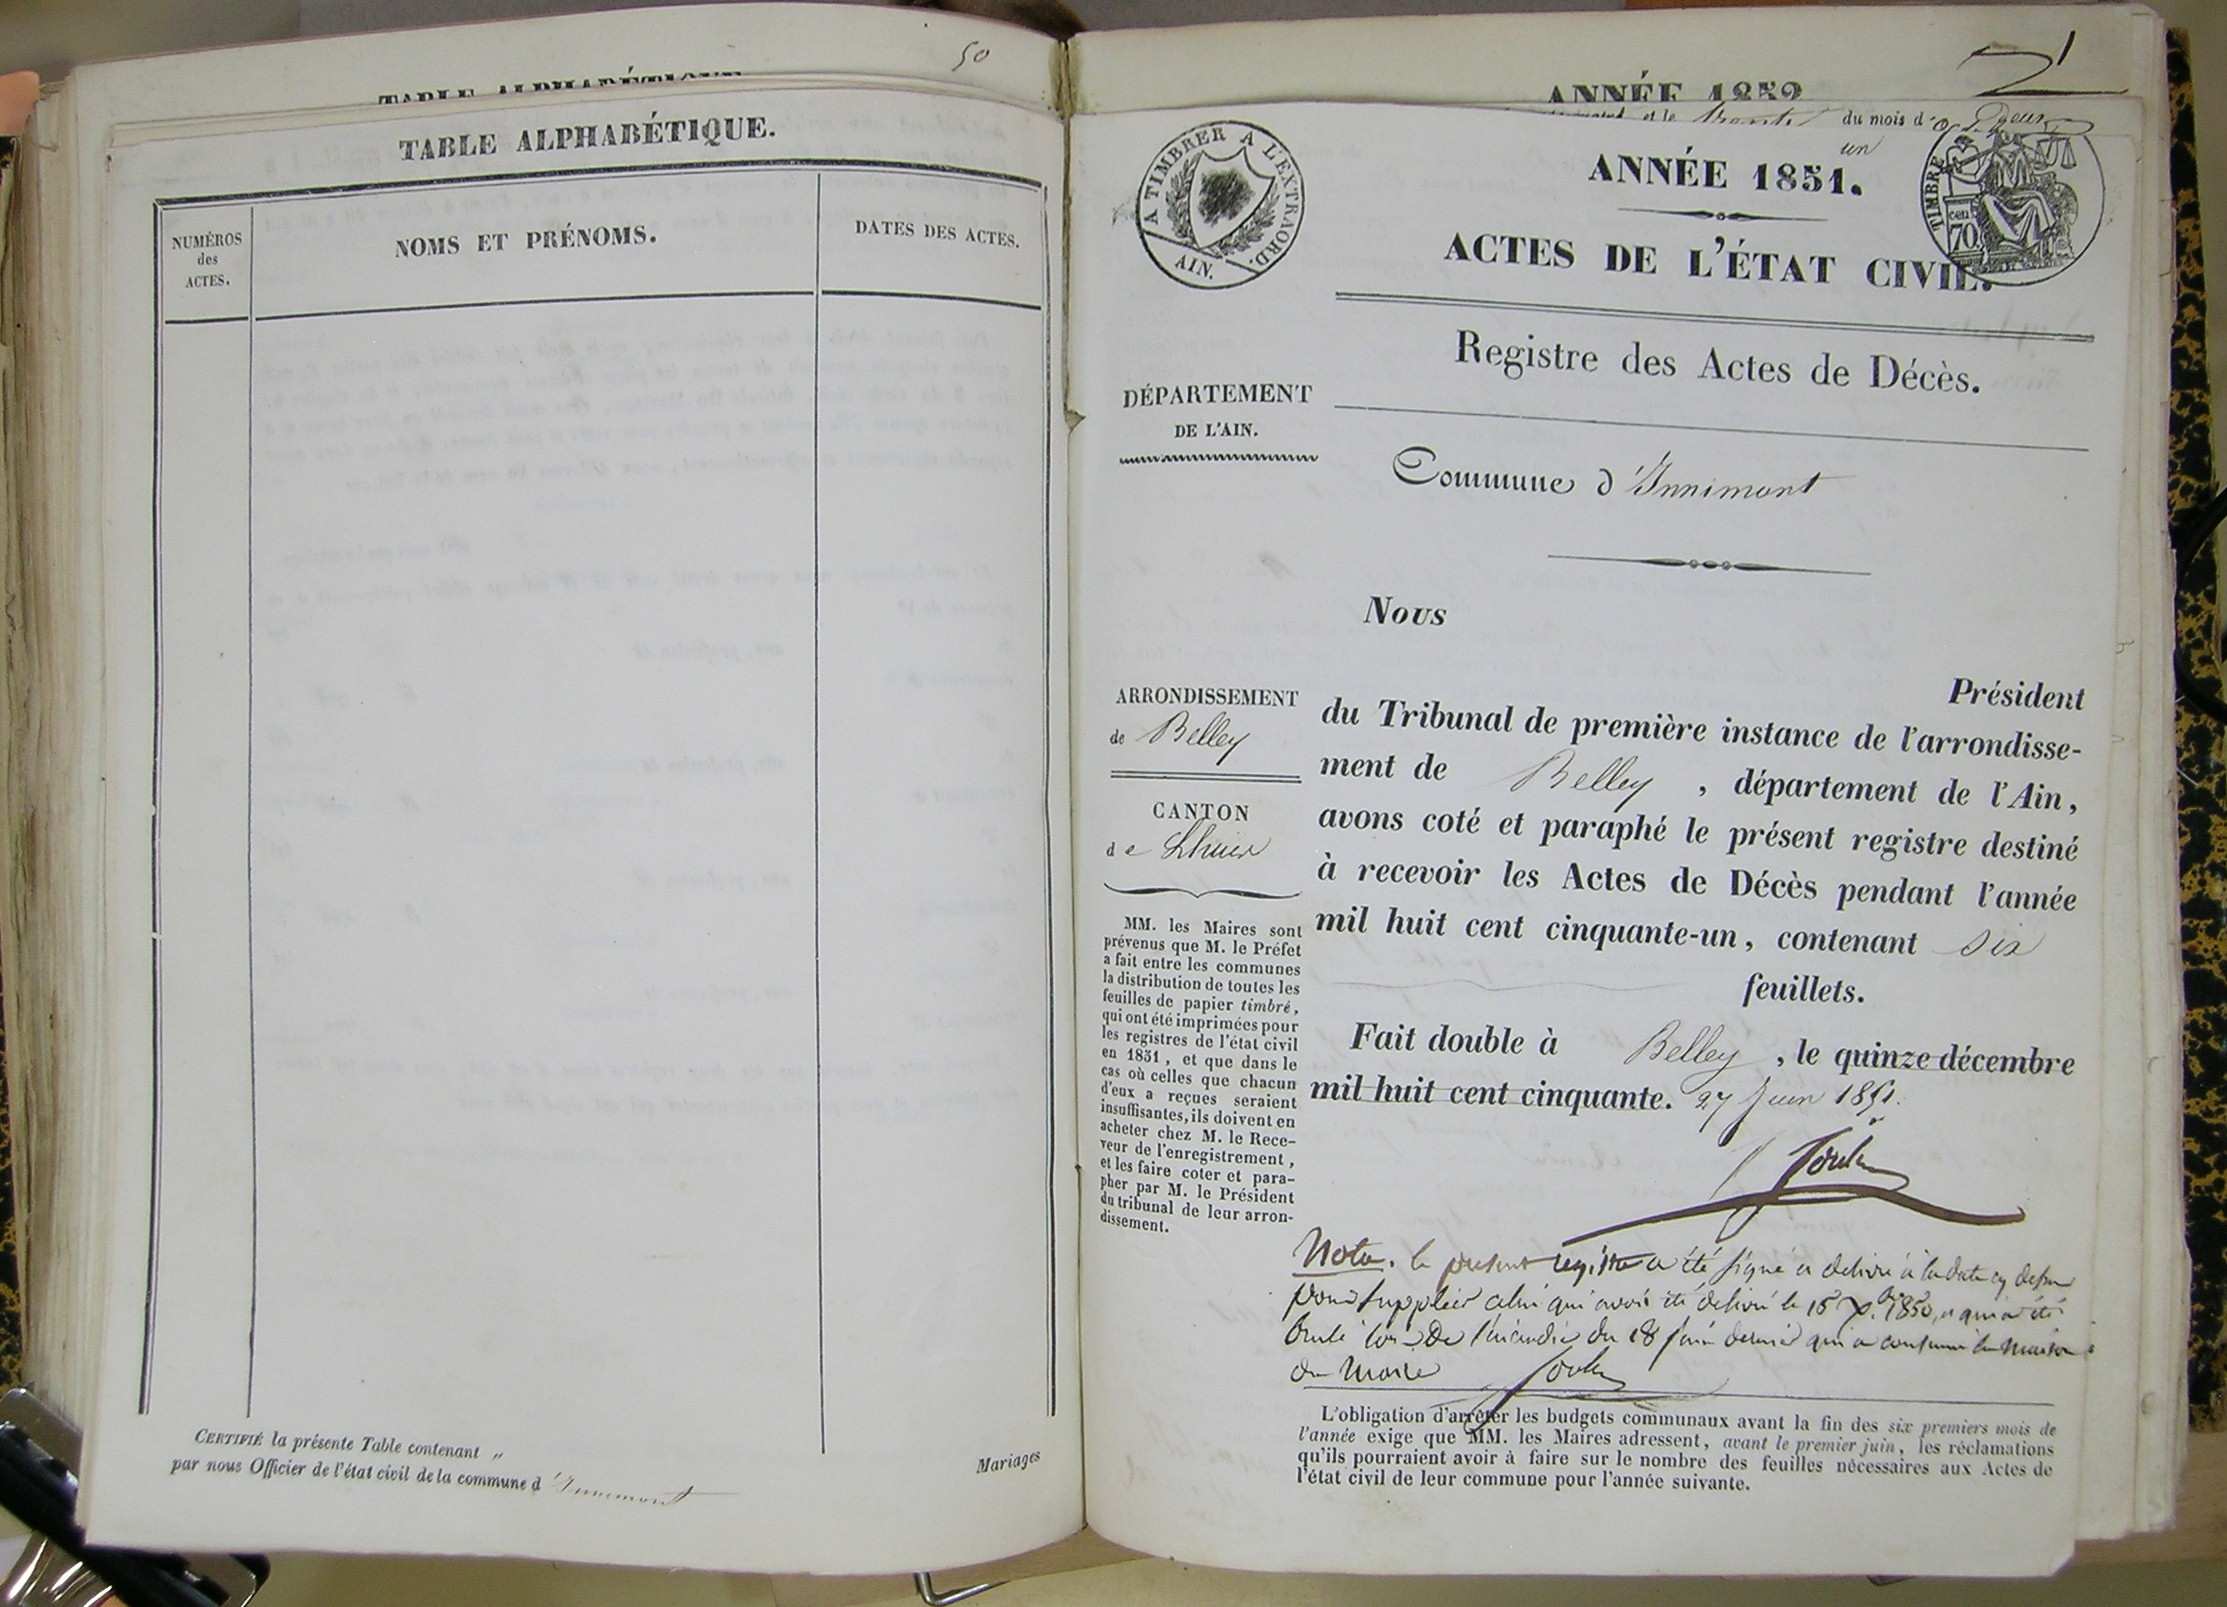 50
TABLE ALPHABÉTIQUE
TABLE ALPHABÉTIQUE.
NUMÉROS
des
ACTES.
NOMS ET PRÉNOMS.
DATES DES ACTES.
CERTIFIÉ la présente Table contenant "
par nous Officier de l'état civil de la commune d'Innimont
Mariages
1
ANNÉE 1852
et le trente du mois d
un
A TIMBRER A L'EXTRAORD.
AIN.
TIMBRE
cen
70.
ANNÉE 1851.
ACTES DE L'ÉTAT CIVIL.
Registre des Actes de Décès.
DÉPARTEMENT
DE L'AIN.
Commune d'Innimont
Nous
Président
ARRONDISSEMENT
de Belley
CANTON
de Lhuis
MM. les Maires sont
prévenus que M. le Préfet
a fait entre les communes
la distribution de toutes les
feuilles de papier timbré,
qui ont été imprimées pour
les registres de l'état civil
en 1851, et que dans le
cas où celles que chacun
d'eux a reçues seraient
insuffisantes, ils doivent en
acheter chez M. le Rece-
veur de l'enregistrement,
et les faire coter et para-
pher par M. le Président
du tribunal de leur arron-
dissement.
du Tribunal de première instance de l'arrondisse-
ment de Belley, département de l'Ain,
avons coté et paraphé le présent registre destiné
à recevoir les Actes de Décès pendant l'année
mil huit cent cinquante-un, contenant six
feuillets.
Fait double à Belley, le quinze décembre
mil huit cent cinquante. 27 Juin 1851.
Nota. le présent registre a été signé et délivré à la date cy dessus
pour suppléer celui qui avoit été délivré le 15 Xbre 1850, et qui a été
brulé lors de l'incendie du 18 juin dernier qui a consumé la maison
du Maire
L'obligation d'arrêter les budgets communaux avant la fin des six premiers mois de
l'année exige que MM. les Maires adressent, avant le premier juin, les réclamations
qu'ils pourraient avoir à faire sur le nombre des feuilles nécessaires aux Actes de
l'état civil de leur commune pour l'année suivante.